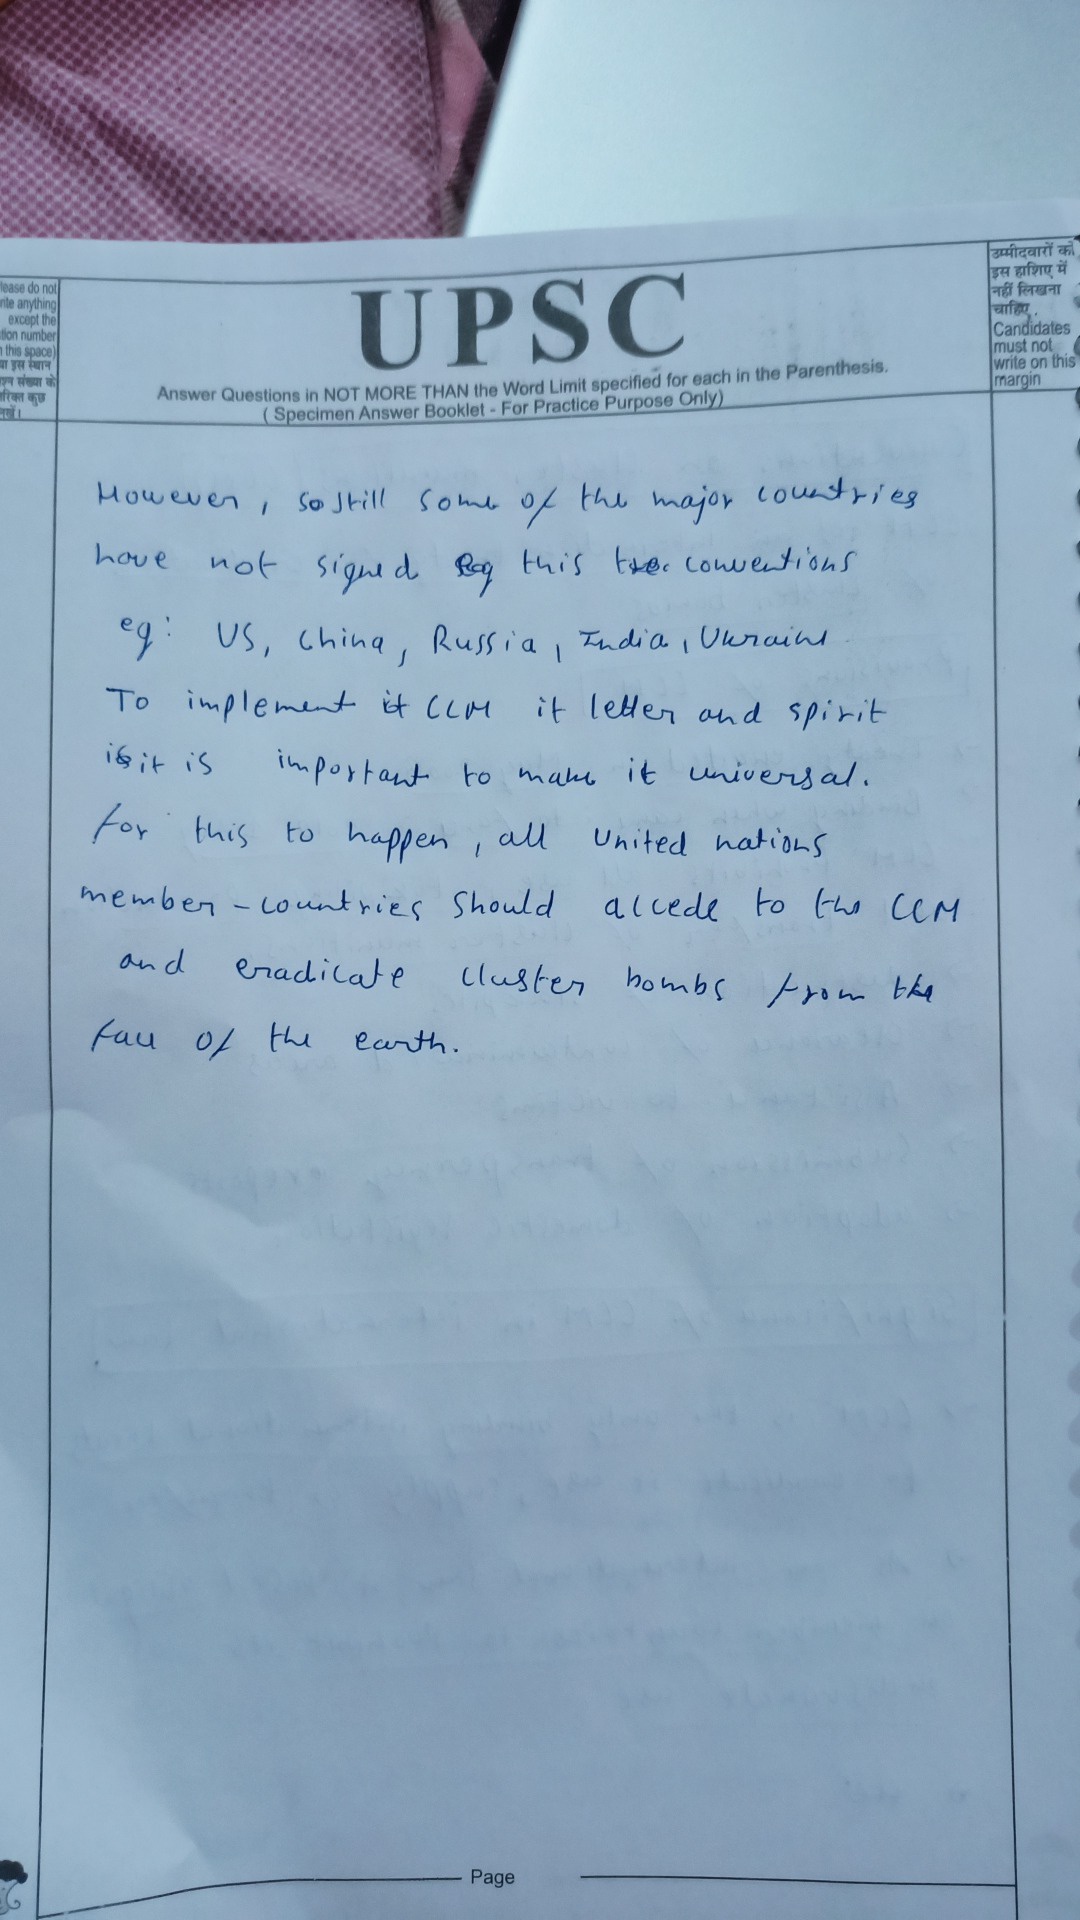 lease do not
rite anything
except the
tion number
this space)
UPSC
Answer Questions in NOT MORE THAN the Word Limit specified for each in the Parenthesis.
( Specimen Answer Booklet - For Practice Purpose Only)
उम्मीदवारों को
इस हाशिए में
नहीं लिखना
चाहिए
Candidates
must not
write on this
margin
However, still some of the major countries
have not signed this conventions
eg: US, China, Russia, India, Ukraine
To implement CCM it letter and spirit
it is important to make it universal.
for this to happen, all United nations
member - countries should accede to the CCM
and eradicate cluster bombs from the
face of the earth.
Page